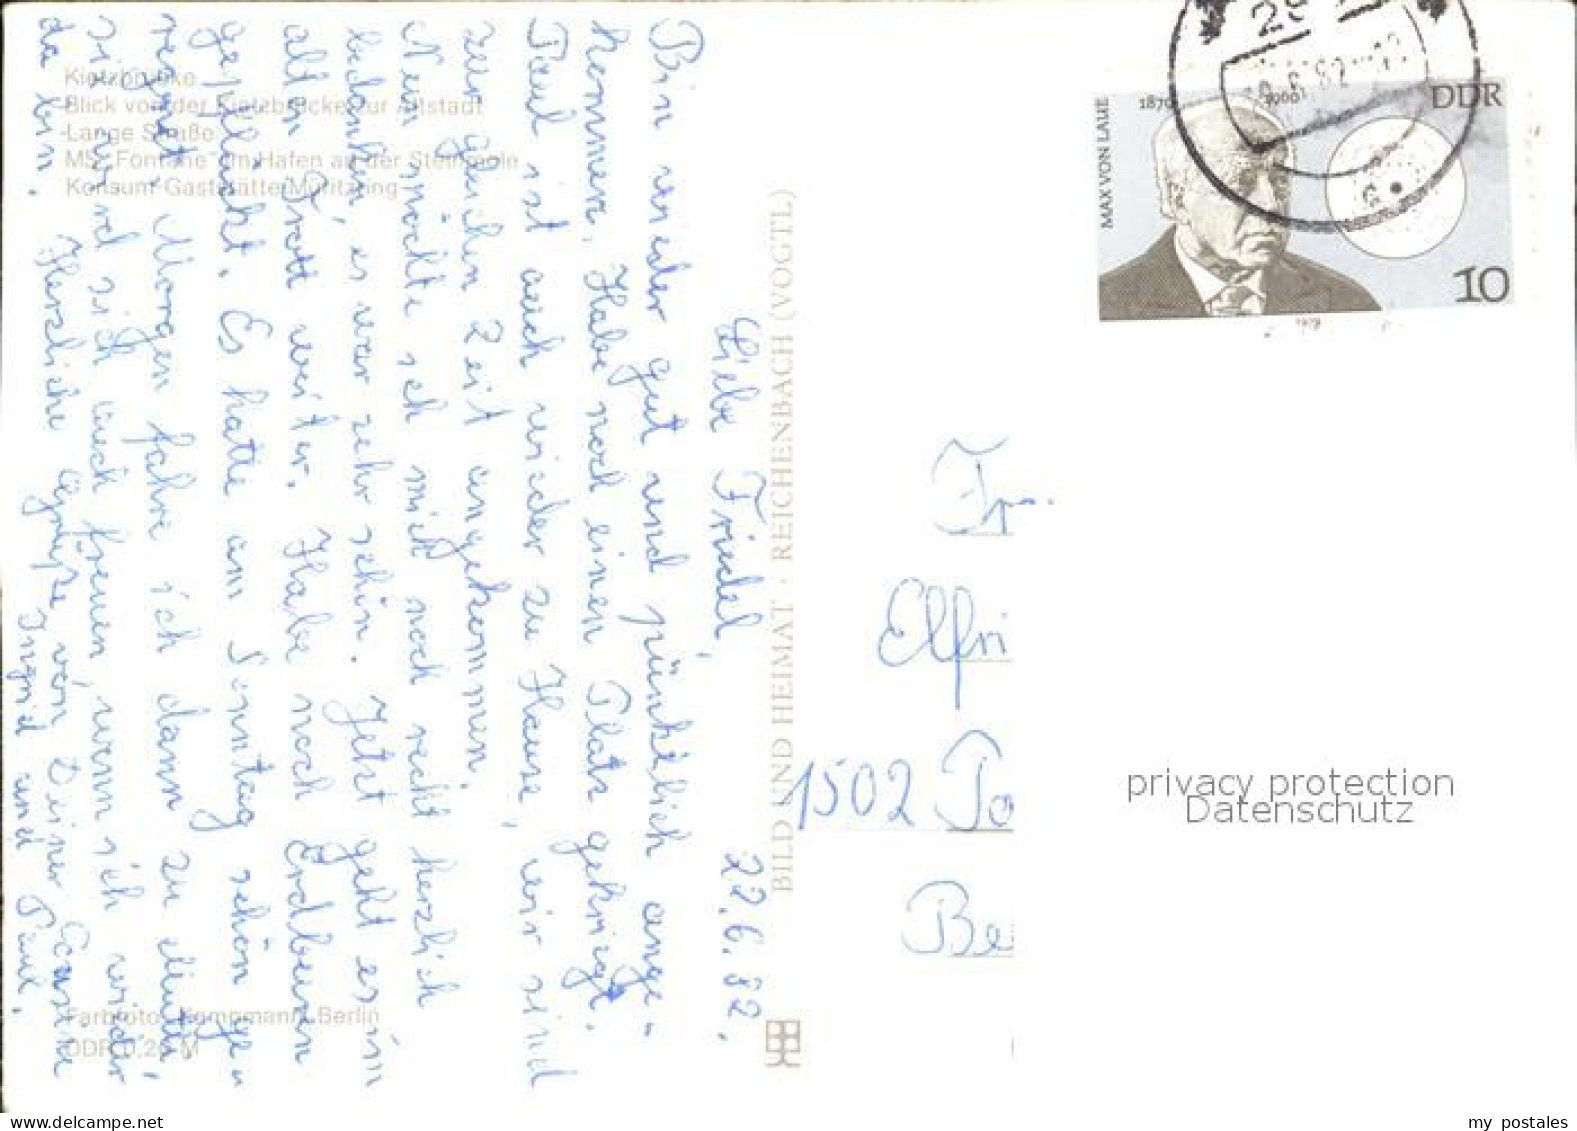 Kietzbrücke
Blick von der Kietzbrücke zur Altstadt
Lange Straße
MS „Fontane“ im Hafen an der Steinmole
Konsum-Gaststätte Müritzring
Liebe Friedel, 22.6.82.
Bin wieder gut und pünktlich ange-
kommen. Habe noch einen Platz gekriegt.
Paul ist auch wieder zu Hause, wir sind
zur gleichen Zeit angekommen.
Nun möchte ich mich noch recht herzlich
bedanken, es war sehr schön. Jetzt geht es im
alten Trott weiter. Habe noch Erdbeeren
gepflückt. Es hatte am Sonntag schön ge-
regnet. Morgen fahre ich dann zu Mutti,
sie wird sich auch freuen, wenn ich wieder
da bin. Herzliche Grüße von Deiner
Ingrid und Paul.
BILD UND HEIMAT · REICHENBACH (VOGTL)
Farbfoto: Kempmann, Berlin
DDR 0,20 M
MAX VON LAUE
1879 1960
DDR
10
1979
Elfri
1502 Po
privacy protection
Datenschutz
www.delcampe.net
my_postales